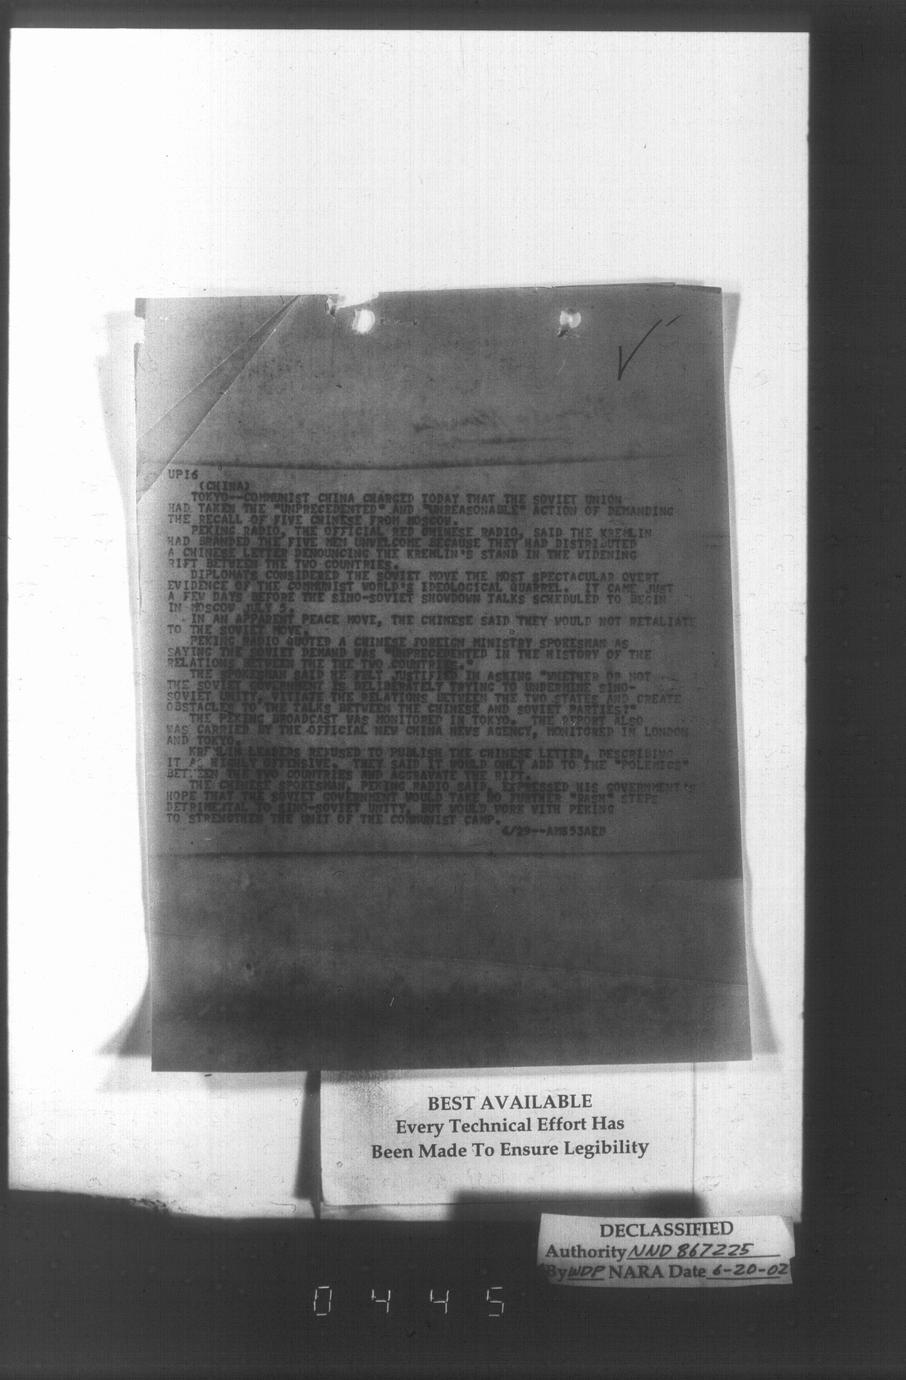 UPI6
(CHINA)
TOKYO--COMMUNIST CHINA CHARGED TODAY THAT THE SOVIET UNION
HAD TAKEN THE "UNPRECEDENTED" AND "UNREASONABLE" ACTION OF DEMANDING
THE RECALL OF FIVE CHINESE FROM MOSCOW.
PEKING RADIO, THE OFFICIAL RED CHINESE RADIO, SAID THE KREMLIN
HAD BRANDED THE FIVE MEN UNWELCOME BECAUSE THEY HAD DISTRIBUTED
A CHINESE LETTER DENOUNCING THE KREMLIN'S STAND IN THE WIDENING
RIFT BETWEEN THE TWO COUNTRIES.
DIPLOMATS CONSIDERED THE SOVIET MOVE THE MOST SPECTACULAR OVERT
EVIDENCE OF THE COMMUNIST WORLD'S IDEOLOGICAL QUARREL. IT CAME JUST
A FEW DAYS BEFORE THE SINO-SOVIET SHOWDOWN TALKS SCHEDULED TO BEGIN
IN MOSCOW JULY 5.
IN AN APPARENT PEACE MOVE, THE CHINESE SAID THEY WOULD NOT RETALIATE
TO THE SOVIET MOVE.
PEKING RADIO QUOTED A CHINESE FOREIGN MINISTRY SPOKESMAN AS
SAYING THE SOVIET DEMAND WAS "UNPRECEDENTED IN THE HISTORY OF THE
RELATIONS BETWEEN THE THE TWO COUNTRIES."
THE SPOKESMAN SAID HE FELT JUSTIFIED IN ASKING "WHETHER OR NOT
THE SOVIET GOVERNMENT IS DELIBERATELY TRYING TO UNDERMINE SINO-
SOVIET UNITY, VITIATE THE RELATIONS BETWEEN THE TWO STATES AND CREATE
OBSTACLES TO THE TALKS BETWEEN THE CHINESE AND SOVIET PARTIES?"
THE PEKING BROADCAST WAS MONITORED IN TOKYO. THE REPORT ALSO
WAS CARRIED BY THE OFFICIAL NEW CHINA NEWS AGENCY, MONITORED IN LONDON
AND TOKYO.
KREMLIN LEADERS REFUSED TO PUBLISH THE CHINESE LETTER, DESCRIBING
IT AS HIGHLY OFFENSIVE. THEY SAID IT WOULD ONLY ADD TO THE "POLEMICS"
BETWEEN THE TWO COUNTRIES AND AGGRAVATE THE RIFT.
THE CHINESE SPOKESMAN, PEKING RADIO SAID, EXPRESSED HIS GOVERNMENT'S
HOPE THAT THE SOVIET GOVERNMENT WOULD TAKE NO FURTHER "RASH" STEPS
DETRIMENTAL TO SINO-SOVIET UNITY, BUT WOULD WORK WITH PEKING
TO STRENGTHEN THE UNIT OF THE COMMUNIST CAMP.
6/29--AM853AED
BEST AVAILABLE
Every Technical Effort Has
Been Made To Ensure Legibility
DECLASSIFIED
Authority NND 867225
By WDP NARA Date 6-20-02
0445